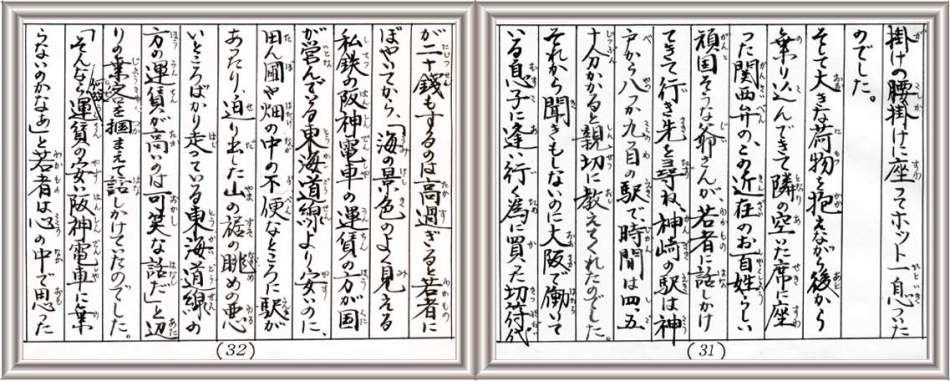 掛けの腰掛けに座ってホット一息ついた
のでした。
そして大きな荷物を抱えながら後から
乗り込んできて隣の空いた席に座
った関西弁のこの近在のお百姓らしい
頑固そうな爺さんが、若者に話しかけ
てきて行き先を尋ね、神崎の駅は神
戸から八つか九つ目の駅で、時間は四、五
十分かかると親切に教えてくれたのでした。
それから聞きもしないのに大阪で働いて
いる息子に逢い行く為に買った切符代
(31)
が二十銭もするのは高過ぎると若者に
ぼやいてから、「海の景色のよく見える
私鉄の阪神電車の運賃の方が国
が営んでいる東海道線より安いのに、
田ん圃や畑の中の不便なところに駅が
あったり、迫り出した山の裾の眺めの悪
いところばかり走っている東海道線の
方の運賃が高いのは可笑な話だ」と辺
りの乗客を掴まえて話しかけていたのでした。
「そんなら何故運賃の安い阪神電車に乗
らないのかなあ」と若者は心の中で思った
(32)